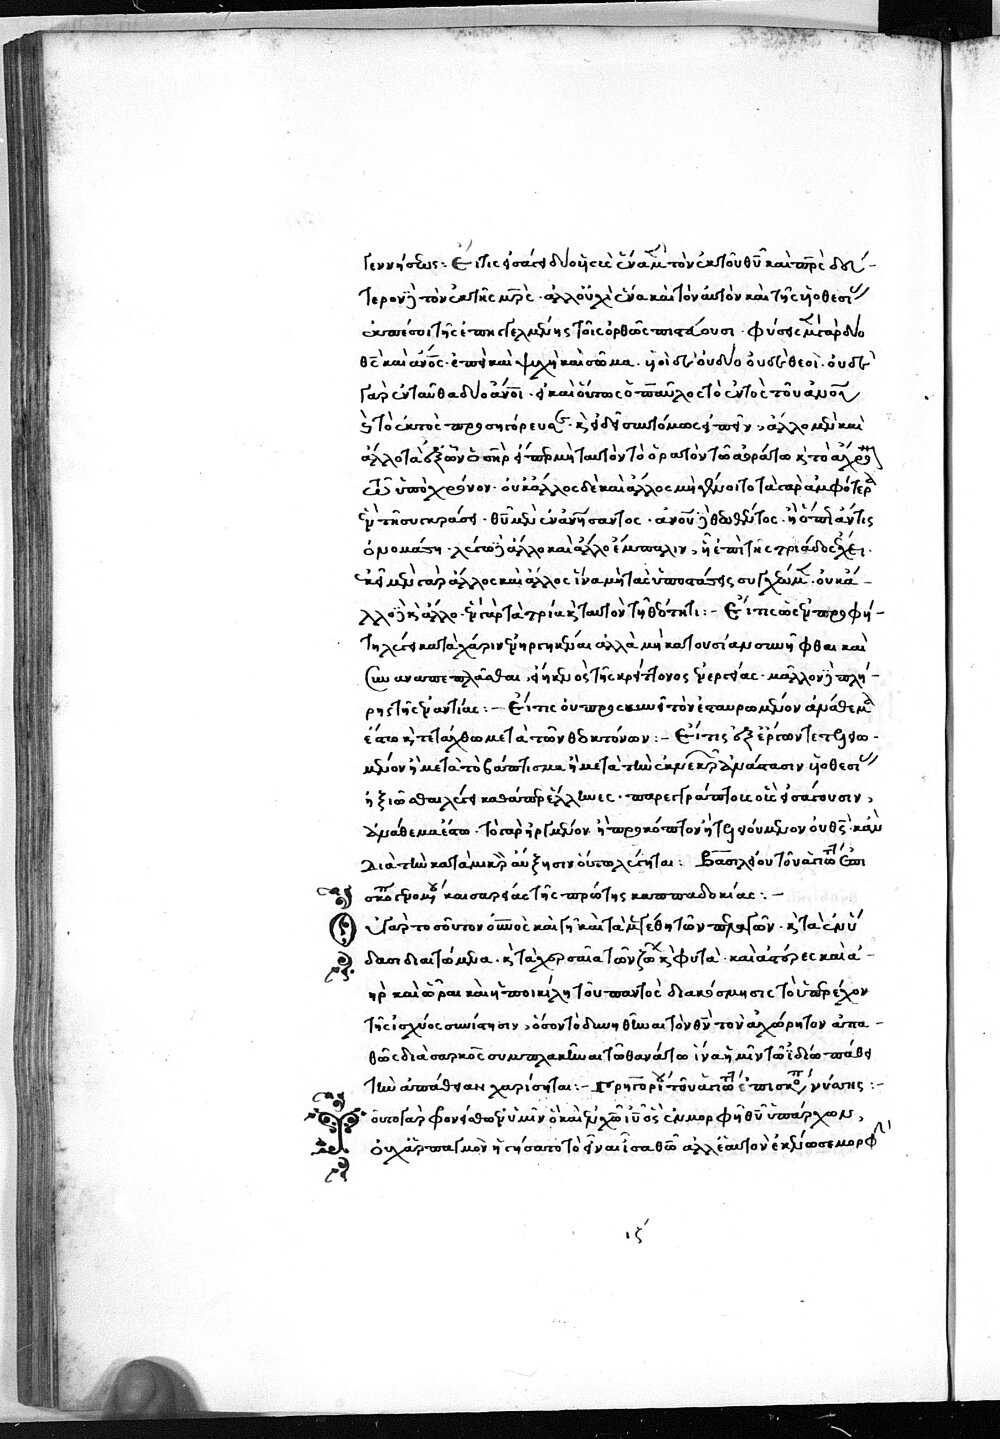 γεννήσεως: Εἴ τις εἰσάγει δύο υἱοὺς ἕνα μὲν τὸν ἐκ τοῦ θῦ καὶ πρς δεύ-
τερον δὲ τὸν ἐκ τῆς μρς · ἀλλ οὐχὶ ἕνα καὶ τὸν αὐτὸν καὶ τῆς υἱοθεσίας
ἐκπέσοι τῆς ἐπηγγελμένης τοῖς ὀρθῶς πιστεύουσι · φύσεις μὲν γὰρ δύο
θς καὶ ἄνος · ἐπεὶ καὶ ψυχὴ καὶ σῶμα · υἱοὶ δὲ οὐ δύο οὐδὲ θεοί · οὐδὲ
γὰρ ἐνταῦθα δύο ἄνοι · εἰ καὶ οὕτως ὁ παῦλος τὸ ἐντὸς τοῦ ἀνου
καὶ τὸ ἐκτὸς προσηγόρευσε · καὶ εἰ δεῖ συντόμως εἰπεῖν, ἄλλο μὲν καὶ
ἄλλο τὰ ἐξ ὧν ὁ σηρ εἴπερ μὴ ταυτὸν τὸ ὁρατὸν τῶ ἀοράτω καὶ τὸ ἄχρονον
τῶ ὑπὸ χρόνον · οὐκ ἄλλος δὲ καὶ ἄλλος μὴ γένοιτο τὰ γὰρ ἀμφότερα
ἓν τῆ συγκράσει · θῦ μὲν ἐνανθρωπήσαντος · ἀνου δὲ θεωθέντος · ἢ ὅπως ἄν τις
ὀνομάση · λέγω δὲ ἄλλο καὶ ἄλλο ἔμπαλιν, ἢ ἐπὶ τῆς τριάδος ἔχει ·
ἐκεῖ μὲν γὰρ ἄλλος καὶ ἄλλος ἵνα μὴ τὰς ὑποστάσεις συγχέωμεν · οὐκ ἄ-
λλο δὲ καὶ ἄλλο · ἓν γὰρ τὰ τρία καὶ ταυτὸν τῆ θεότητι: – Εἴ τις ὡς ἐν προφή-
τη λέγει κατὰ χάριν ἐνηργηκέναι ἀλλὰ μὴ κατ οὐσίαν συνῆφθαι καὶ
συναναπεπλάσθαι, εἴη κενὸς τῆς κρείττονος ἐνεργείας · μᾶλλον δὲ πλή-
ρης τῆς ἐναντίας: – Εἴ τις οὐ προσκυνεῖ τὸν ἐσταυρωμένον ἀνάθεμα
ἔστω καὶ τετάχθω μετὰ τῶν θεοκτόνων: – Εἴ τις ἐξ ἔργων τετελειω-
μένον ἢ μετὰ τὸ βάπτισμα ἢ μετὰ τὴν ἐκ νεκρῶν ἀνάστασιν υἱοθεσίας
ἠξιῶσθαι λέγει καθάπερ ἕλληνες · παρεγγράπτους οὓς εἰσάγουσιν,
ἀνάθεμα ἔστω · τὸ γὰρ ἠργμένον ἢ προκόπτον ἢ τελειούμενον οὐ θς · κἂν
διὰ τὴν κατὰ μικρὸν αὔξησιν οὕτω λέγηται: Βασιλείου τοῦ ἁγιωτ ἐπι
σκόπου γενομένου καισαρείας τῆς πρώτης καππαδοκίας: –
Οὐ γὰρ τοσοῦτον οὐνὸς καὶ γῆ καὶ τὰ μεγέθη τῶν πελαγῶν · καὶ τὰ ἐν ὕ-
δασι διαιτώμενα · καὶ τὰ χερσαῖα τῶν ζώων καὶ φυτὰ · καὶ ἀστέρες καὶ ἀ-
ὴρ καὶ ὧραι καὶ ἡ ποικίλη τοῦ παντὸς διακόσμησις τὸ ὑπερέχον
τῆς ἰσχύος συνίστησιν, ὅσον τὸ δυνηθῆναι τὸν θν τὸν ἀχώρητον ἀπα-
θῶς διὰ σαρκὸς συμπλακῆναι τῶ θανάτω ἵνα ἡμῖν τῶ ἰδίω πάθει
τὴν ἀπάθειαν χαρίσηται: – Γρηγορίου τοῦ ἁγιωτ ἐπισκόπ νύσσης: –
Τοῦτο γὰρ φρονείσθω ἐν ὑμῖν ὃ καὶ ἐν χῶ ἰῦ ὃς ἐν μορφῆ θῦ ὑπάρχων,
οὐχ ἁρπαγμὸν ἡγήσατο τὸ εἶναι ἴσα θῶ ἀλλ ἑαυτὸν ἐκένωσε μορφὴν
ιζ